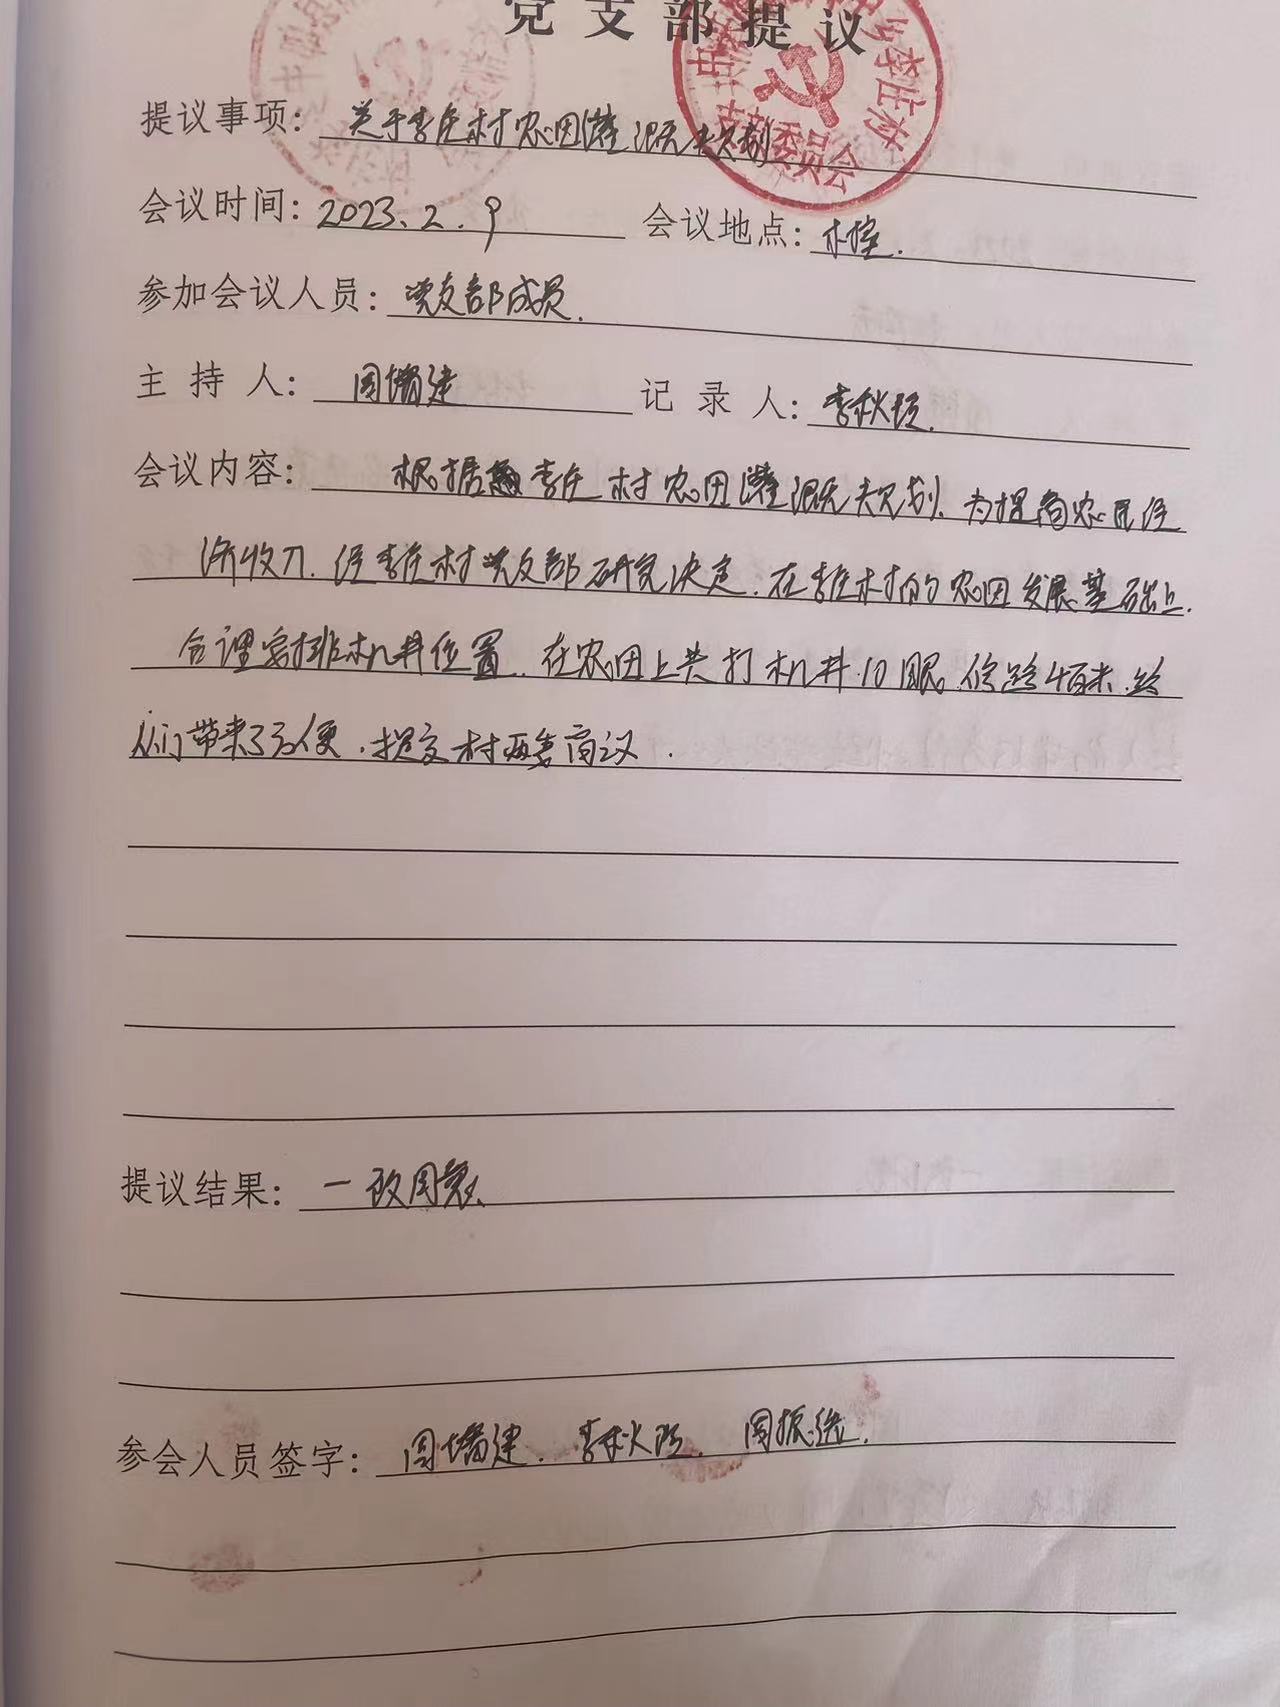 党支部提议
提议事项: 关于李庄村农田灌溉无夫规划
会议时间: 2023.2.9 会议地点: 村室.
参加会议人员: 党支部成员.
主持人: 周增建 记录人: 李秋
会议内容: 根据李庄村农田灌溉规划.为提高农民经
济收入.经李庄村党支部研究决定.在李庄村的农田发展基础上.
合理安排机井位置.在农田上共打机井10眼.修路4百米.给
人们带来了方便.提交村两委商议.
提议结果: 一致同意.
参会人员签字: 周增建. 李秋 周振选.
李庄村
支部委员会